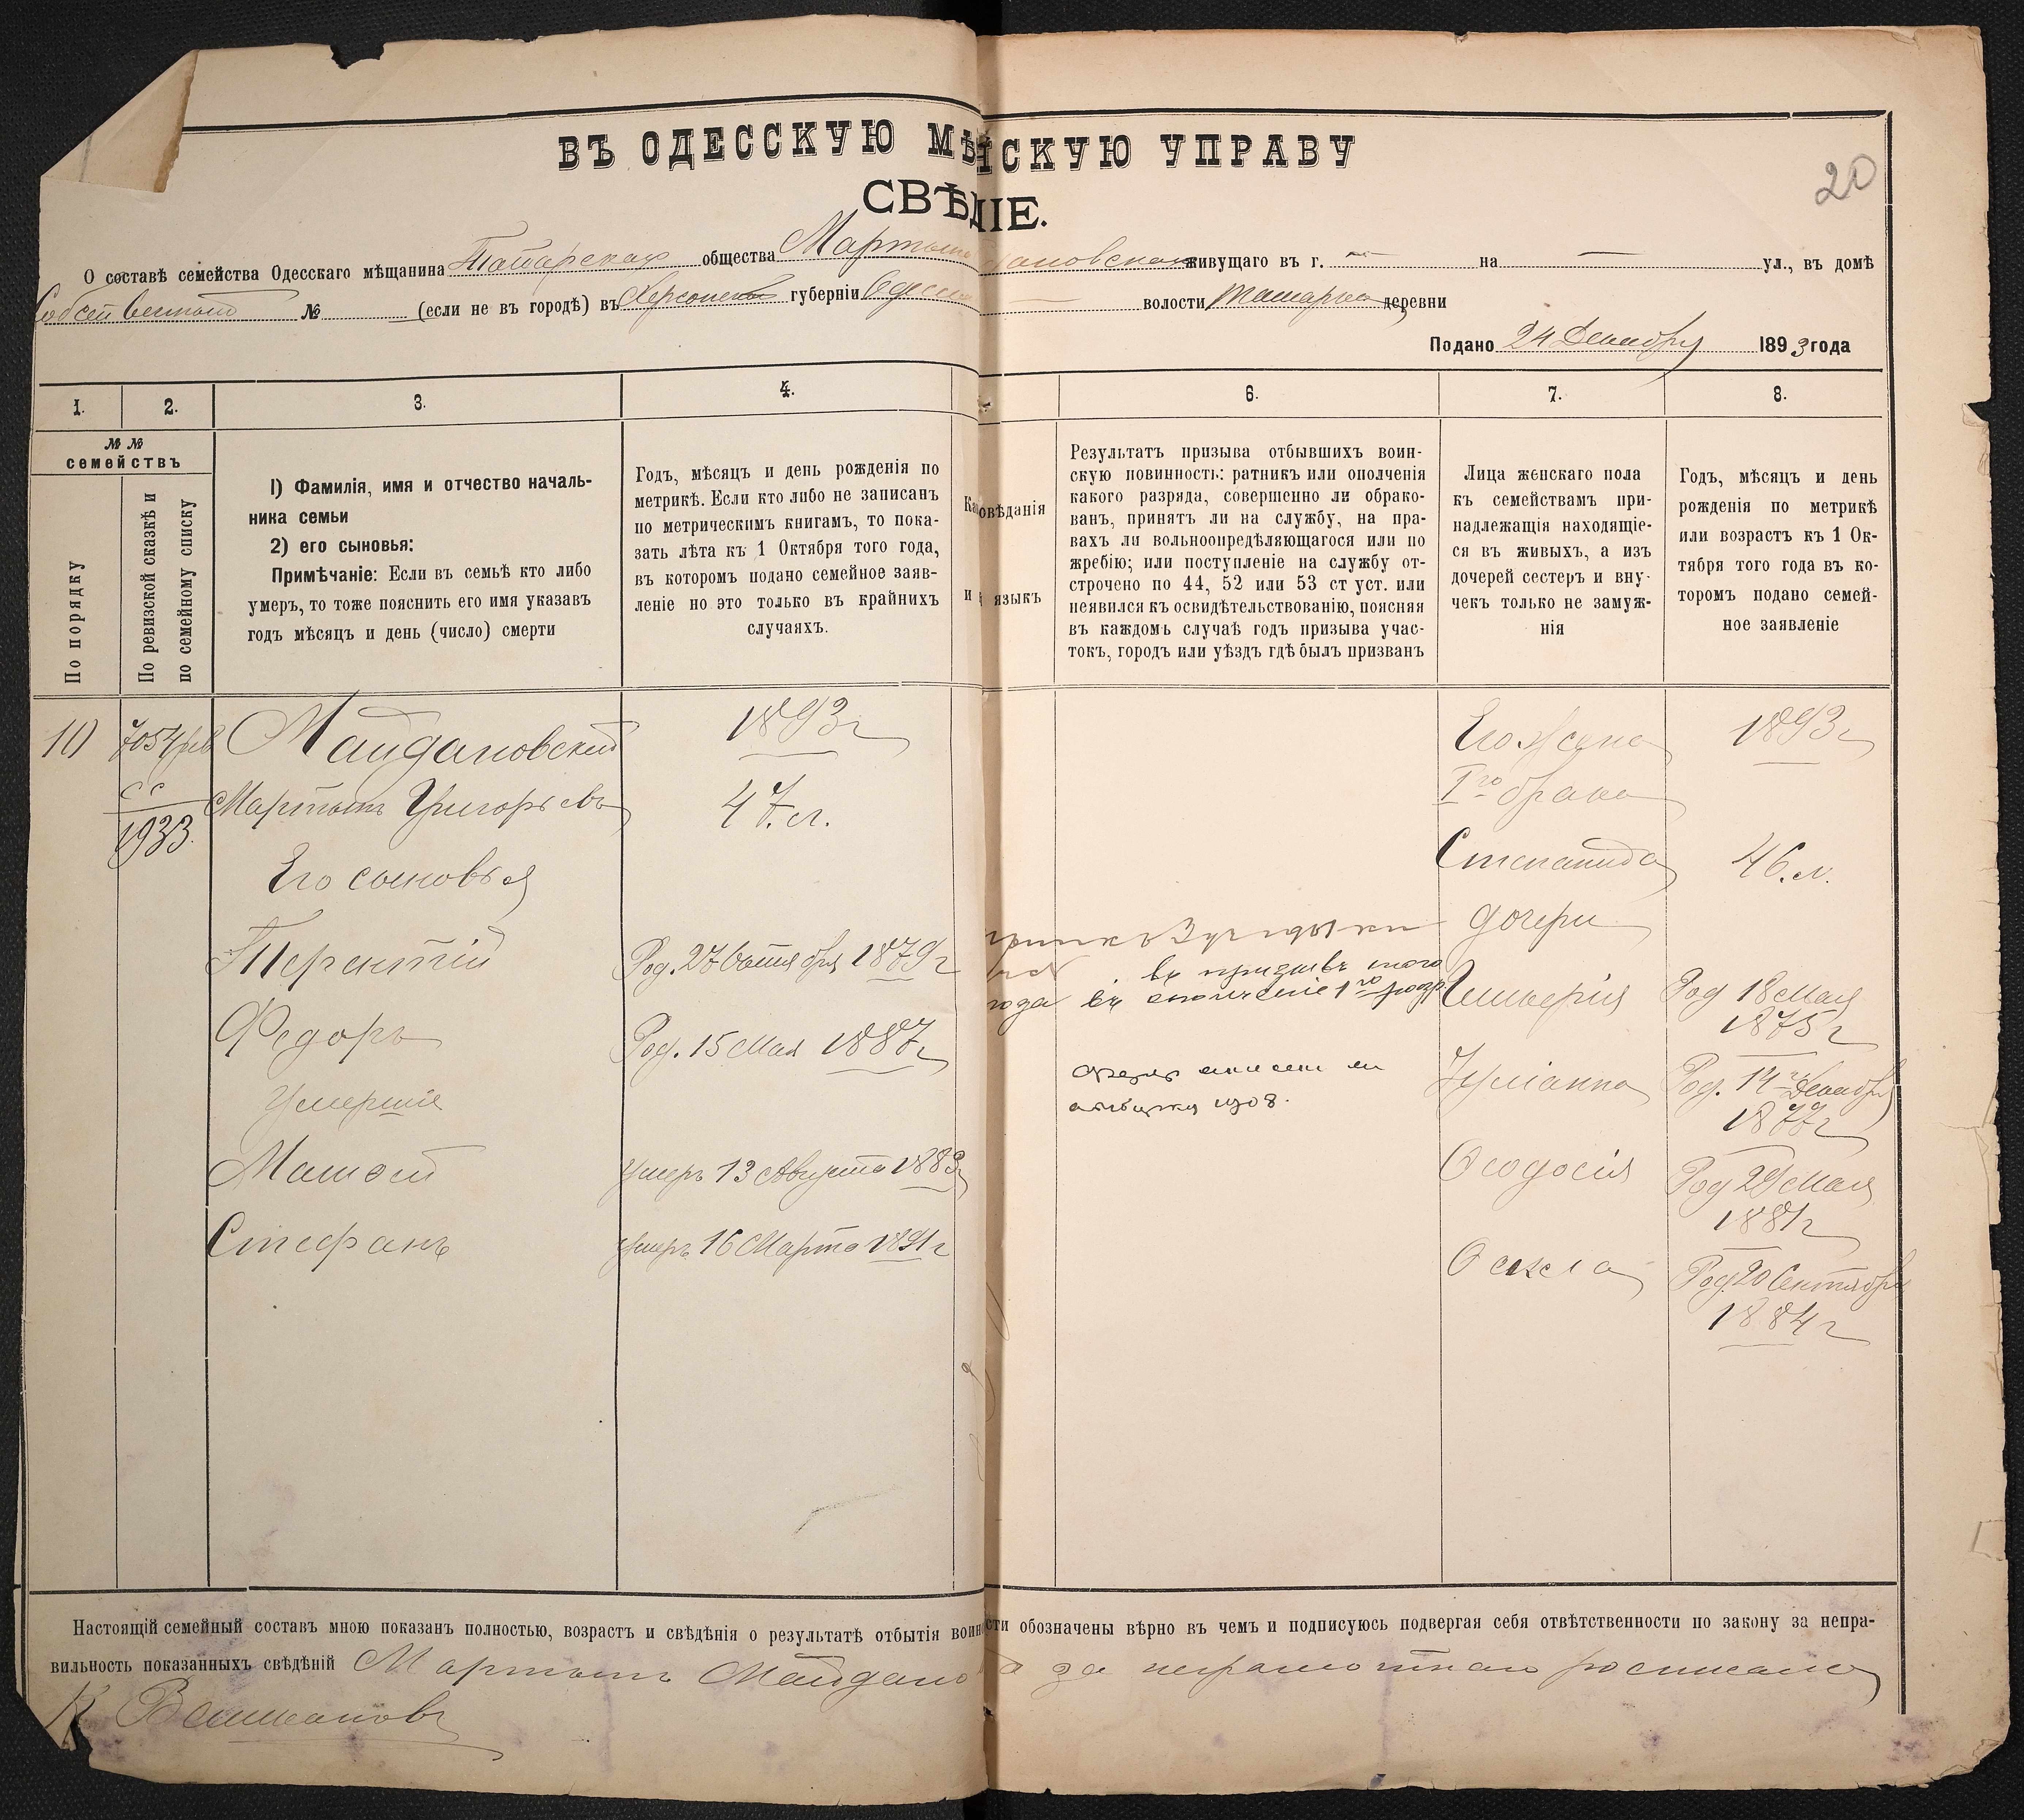 ВЪ ОДЕССКУЮ МѢСКУЮ УПРАВУ
СВѢНІЕ.
20
О составѣ семейства Одесскаго мѣщанина Татарская общества Мартына живущаго въ г. — на — ул., въ домѣ
Собственномъ № (если не въ городѣ) въ Херсонской губерніи волости деревни
Подано 24 Декабря 1893 года
1. 2. 3. 4. 6. 7. 8.
№ №
семействъ
По порядку
По ревизской сказкѣ и
по семейному списку
1) Фамилія, имя и отчество началь-
ника семьи
2) его сыновья:
Примѣчаніе: Если въ семьѣ кто либо
умеръ, то тоже пояснить его имя указавъ
годъ мѣсяцъ и день (число) смерти
Годъ, мѣсяцъ и день рожденія по
метрикѣ. Если кто либо не записанъ
по метрическимъ книгамъ, то пока-
зать лѣта къ 1 Октября того года,
въ которомъ подано семейное заяв-
леніе но это только въ крайнихъ
случаяхъ.
Как овѣданія
и языкъ
Результатъ призыва отбывшихъ воин-
скую повинность: ратникъ или ополченія
какого разряда, совершенно ли обрако-
ванъ, принятъ ли на службу, на пра-
вахъ ли вольноопредѣляющагося или по
жребію; или поступленіе на службу от-
строчено по 44, 52 или 53 ст уст. или
неявился къ освидѣтельствованію, поясняя
въ каждомъ случаѣ годъ призыва учас-
токъ, городъ или уѣздъ гдѣ былъ призванъ
Лица женскаго пола
къ семействамъ при-
надлежащія находящіе-
ся въ живыхъ, а изъ
дочерей сестеръ и вну-
чекъ только не замуж-
нія
Годъ, мѣсяцъ и день
рожденія по метрикѣ
или возрастъ къ 1 Ок-
тября того года въ ко-
торомъ подано семей-
ное заявленіе
10 7054 рев Майдановскій 1893 г Его жена 1893 г
сс Мартынъ Григорьевъ 47. л. 1го брака
1933.
Его сыновья Степанида 46. л.
дочери
Терентій Род. 27 Октября 1879 г
въ призывѣ
года въ ополченіе 1го разр. Гликерія Род 18 Мая
1875 г
Федоръ Род. 15 Мая 1887 г
Умершіе 1908. Іуліанна Род. 14го Декабря
1877 г
Матвей умеръ 13 Августа 1883 г Феодосія Род 29 Мая
1881 г
Стефанъ умеръ 16 Марта 1891 г Фекла Род 20 Сентября
1884 г
Настоящій семейный составъ мною показанъ полностью, возрастъ и свѣдѣнія о результатѣ отбытія воин сти обозначены вѣрно въ чемъ и подписуюсь подвергая себя отвѣтственности по закону за непра-
вильность показанныхъ свѣдѣній Мартынъ Майдано а за неграмотнаго росписался
К